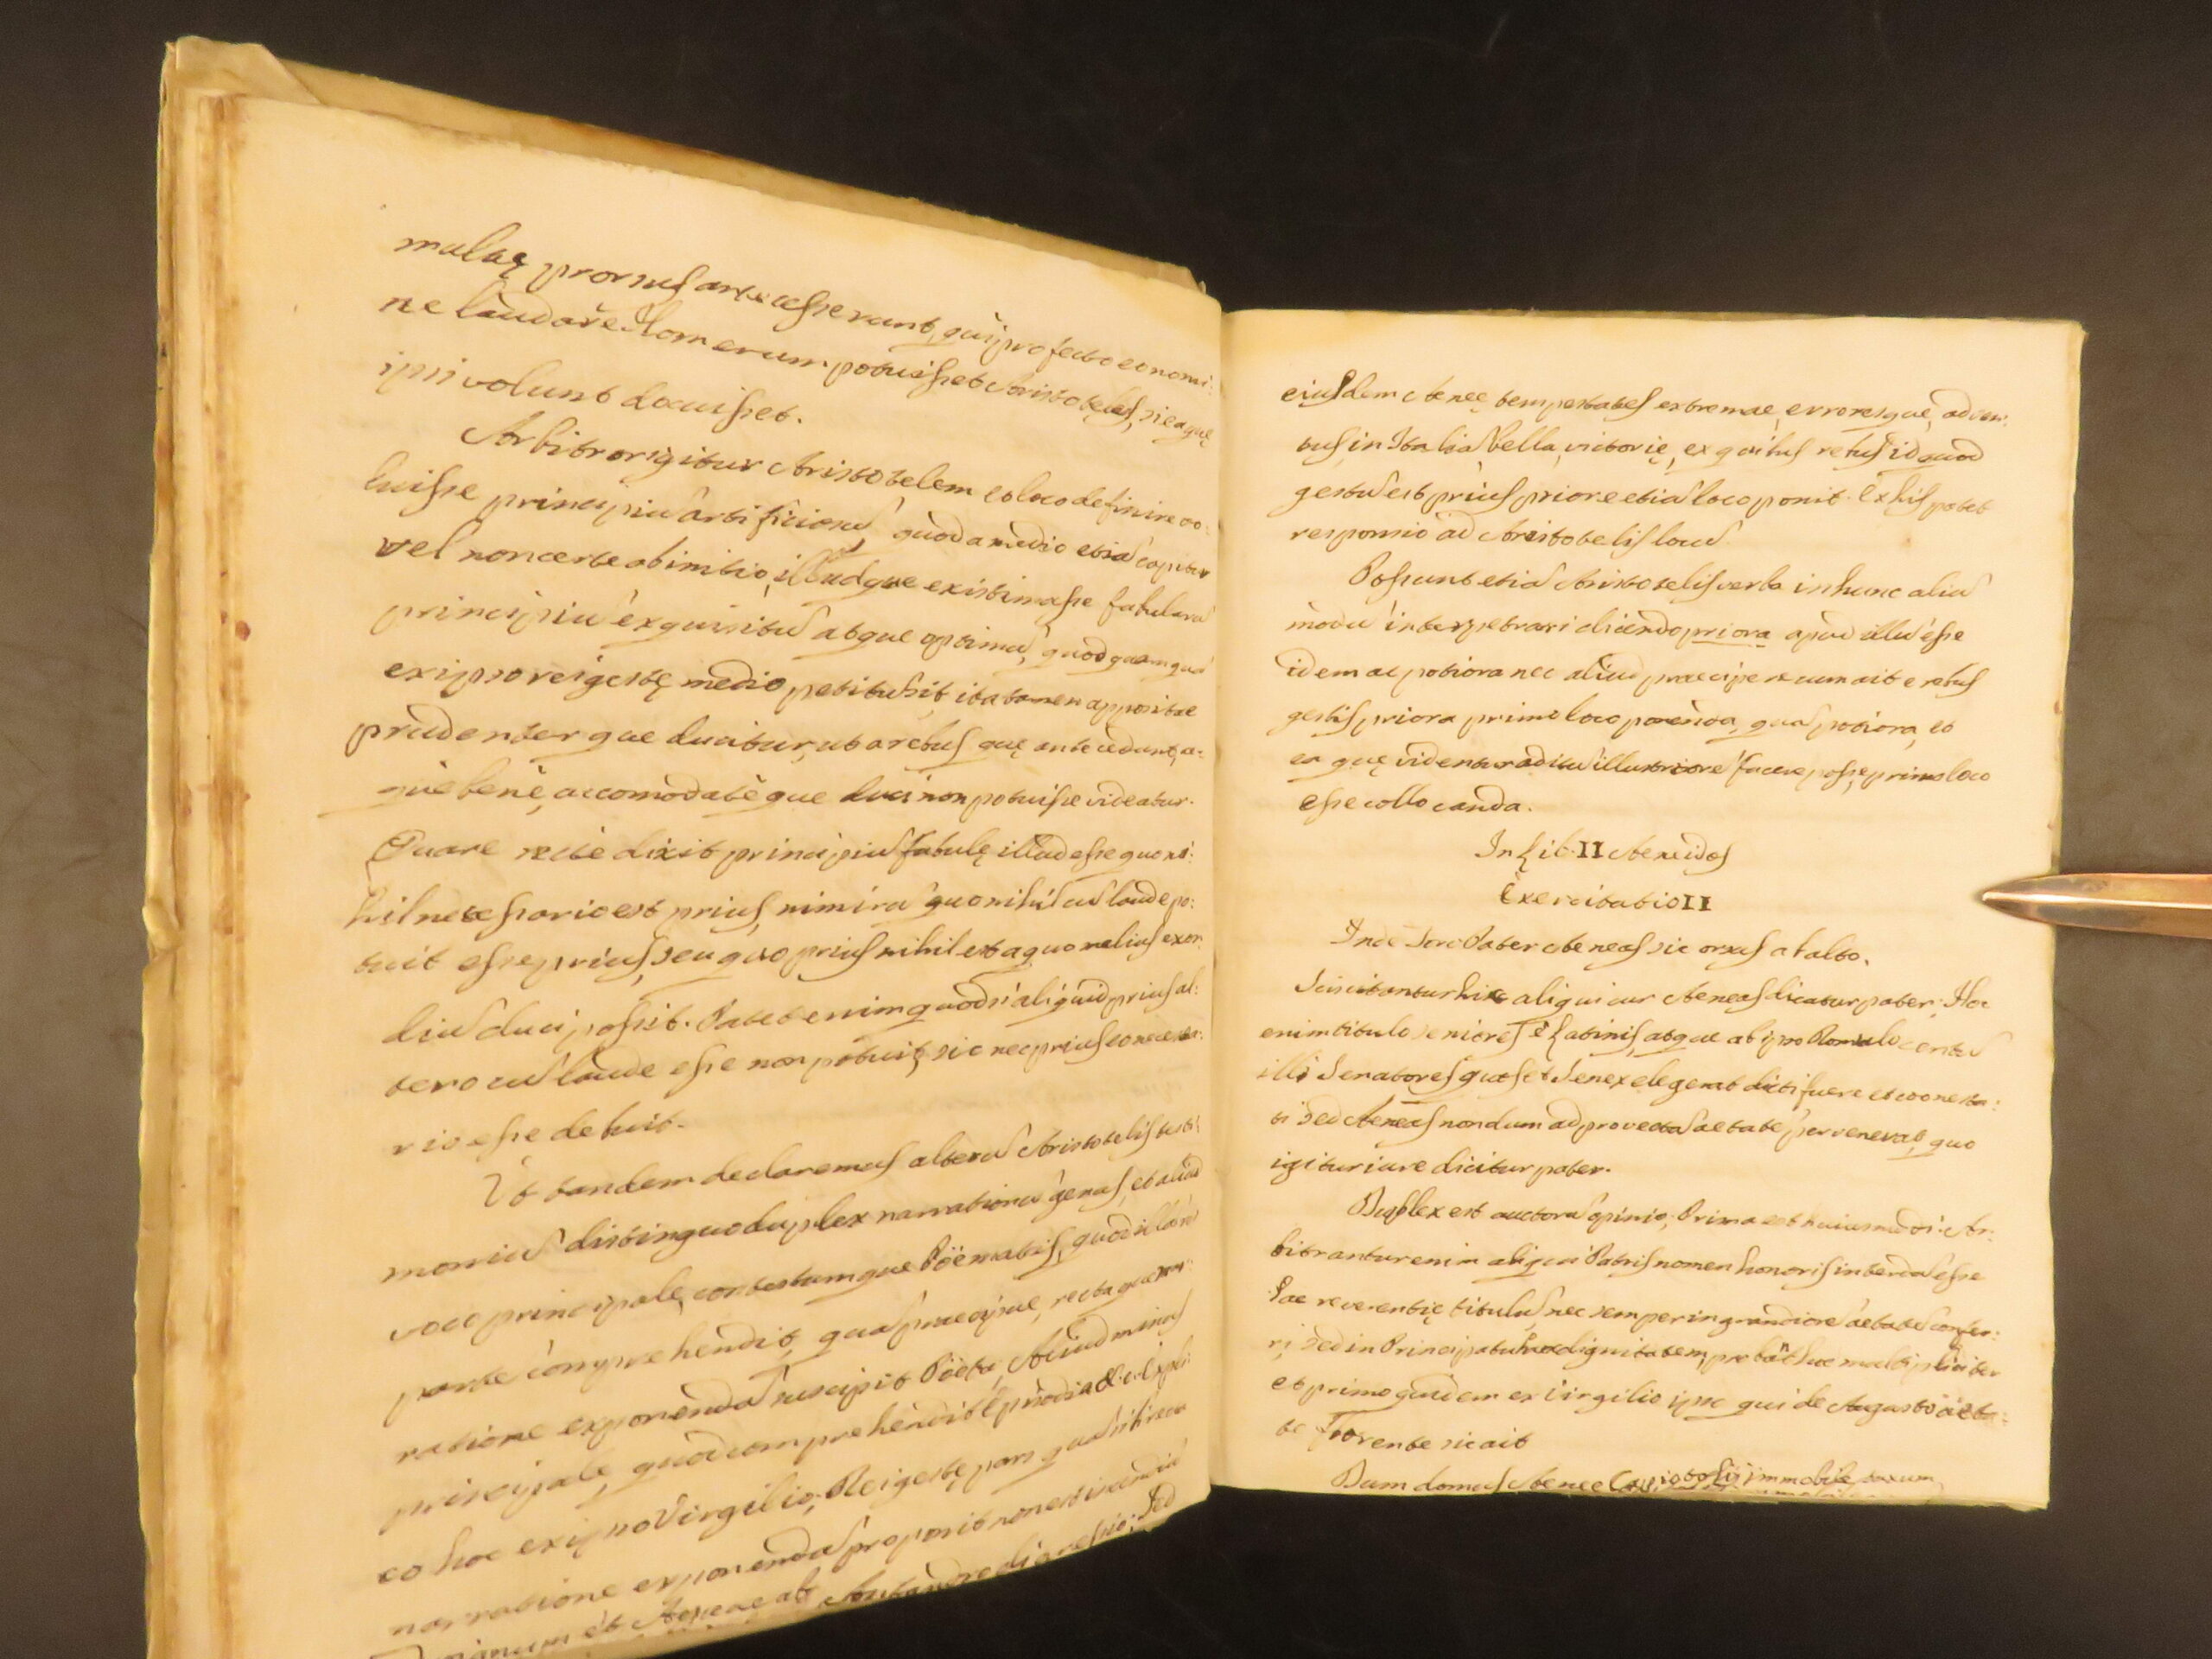 mulaę prorsus arte cesserant, qui profecto eo nomi:
ne laudare Homerum potuisset Aristoteles, si eaquę
ipsi volunt docuisset.
Arbitror igitur Aristotelem eo loco definire vo:
luisse principiũ artificiosũ, quod a medio etiã capitur
vel non certe ab initio, illudque existimasse fabularũ
principiũ exquisitũ atque optimũ, quod quamquã
ex ipso rei gestę medio petitũ sit, ita tamen apposite
prudenterque ducitur, ut a rebus quę antecedunt, ę-
què benè, accomodatèque duci non potuisse videatur.
Quare rectè dixit principiũ fabulę illud esse quo ni:
hil necessario est prius, nimirũ quo nihil cũ laude po:
tuit esse prius, seu quo prius nihil est a quo melius exor:
diũ duci possit. Patet enim quod si aliquid prius al:
tero cũ laude esse non potuit, sic nec prius eo necessa:
rio esse debuit.
Ut tandem declaremus alterũ Aristotelis testi:
moniũ distinguo duplex narrationũ genus, et aliud
voco principale, contextumque Poëmatis, quod illãm
parte comprehendit, quã præcipue, rectaque nar:
ratione exponendã suscipit Poëta, Aliud minus
principale, quod comprehendit Episodia &c. Expli:
co hoc ex ipso Virgilio; Rei gestę pars quã sibi recta
narratione exponendã proposit non est incendiũ
Troianum et Aeneae ab Antandro digressio; Sed
eiusdem Aeneę tempestates extremae, erroresque, adven:
tus in Italiã bella, victorię, ex quibus rebus id quod
gestũ est prius priore etiã loco ponit. Ex his patet
responsio ad Aristotelis locũ
Possunt etiã Aristotelis verba in hunc aliũ
modũ interpetrari dicendo priora apud illũ esse
idem ac potiora nec aliud præcipere cum ait e rebus
gestis priora primo loco ponenda, quã potiora, et
ea quę videntur aditũ illustriorẽ facere posse, primo loco
esse collocanda.
In Lib. II Aeneidos
Exercitatio II
Inde toro Pater Aeneas sic orsus ab alto.
Sciscitantur hic aliqui cur Aeneas dicatur pater; Hoc
enim titulo seniores è Latinis, atque ab ipso Romulo centũ
illi Senatores quos et Senex elegerat dicti fuere et coonesta:
ti sed Aeneas nondum ad provectã aetatẽ pervenerat, quo
igitur iure dicitur pater.
Duplex est auctorũ opinio; Prima est huiusmodi: Ar:
bitrantur enim aliqui Patris nomen honoris interdũ esse
hac reverentię titulũ, nec semper in grandiore aetate confer:
ri, sed in Principatu dignitatem, probãt hoc multipliciter
et primo quidem ex Virgilio ipso qui de Augusto aeta:
te florente sic ait
Dum domus Aeneę Capitolij immobile saxum